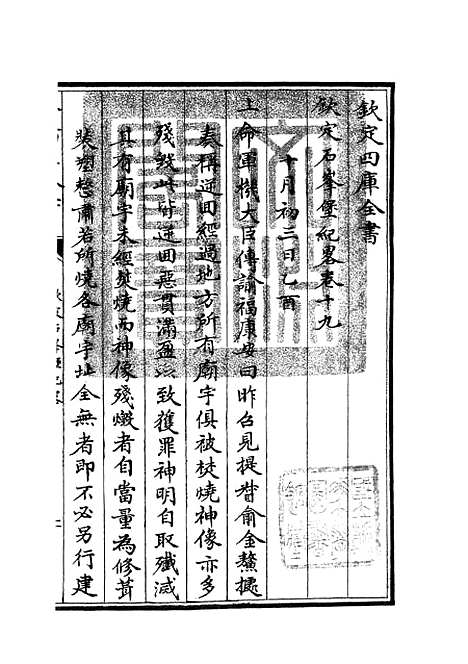 欽定四庫全書
欽定石峯堡紀畧卷十九
十月初三日乙酉
上命軍機大臣傳諭福康安曰昨召見提督俞金鰲據
奏稱逆回經過地方所有廟宇俱被焚燒神像亦多
殘毀此時逆回惡貫滿盈以致獲罪神明自取殲滅
其有廟宇未經焚燒而神像殘燬者自當量為修葺
裝塑整肅若所燒各廟宇址全無者即不必另行建